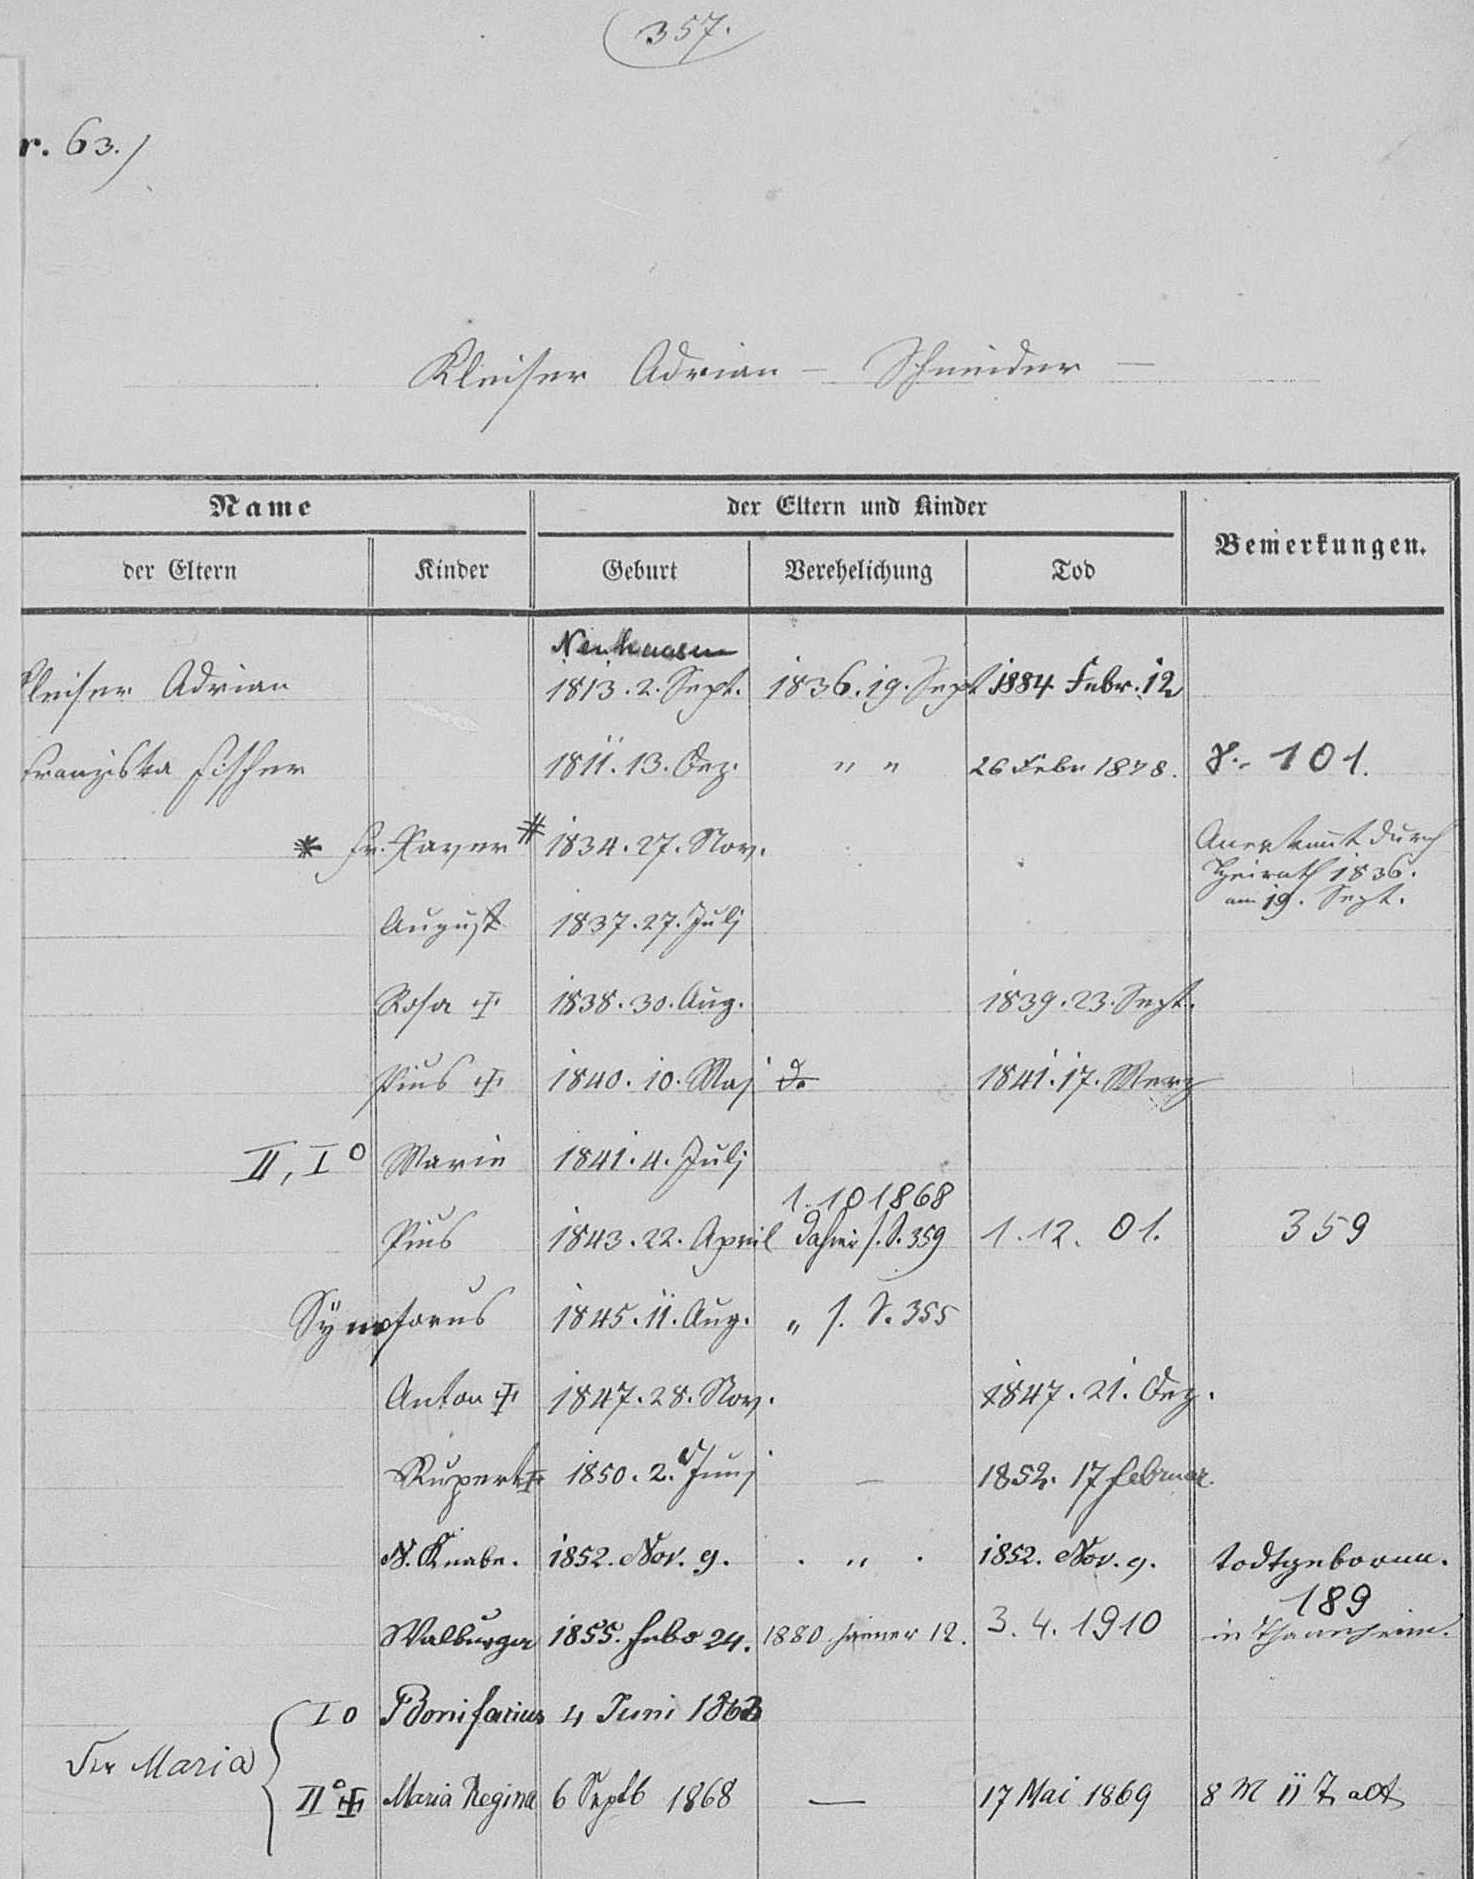 357.
r. 63.)
Kleiser Adrian – Schneider –
Name
der Eltern und Kinder
Bemerkungen.
der Eltern
Kinder
Geburt
Verehelichung
Tod
Neuhausen
Kleiser Adrian 1813. 2. Sept. 1836. 19. Sept 1884 Febr. 12
Franziska Fischer 1811. 13. Dez. " " 26 Febr 1878. S. 101.
* Fr. Xaver # 1834. 27. Nov.
Anerkannt durch
Heirath 1836.
am 19. Sept.
August 1837. 27. Julj
Rosa ‡ 1838. 30. Aug. 1839. 23. Sept.
Pius ‡ 1840. 10. Maj do 1841. 17. Merz
II, I° Marie 1841. 4. Julj
1. 10 1868
Pius 1843. 22. April dahier s. S. 359 1. 12. 01. 359
Symforus 1845. 11. Aug. " s. S. 355
Anton ‡ 1847. 28. Nov. 1847. 21. Dez.
Rupert ‡ 1850. 2. Junj – 1852. 17 Februar.
N. Knabe. 1852. Nov. 9. . " . 1852. Nov. 9. todtgeboren.
189
Walburga 1855. Febr 24. 1880 Jänner 12. 3. 4. 1910 in Thannheim.
I° Bonifacius 4 Juni 1863
Der Maria
II° ‡ Maria Regina 6 Septb 1868 — 17 Mai 1869 8 M 11 T alt